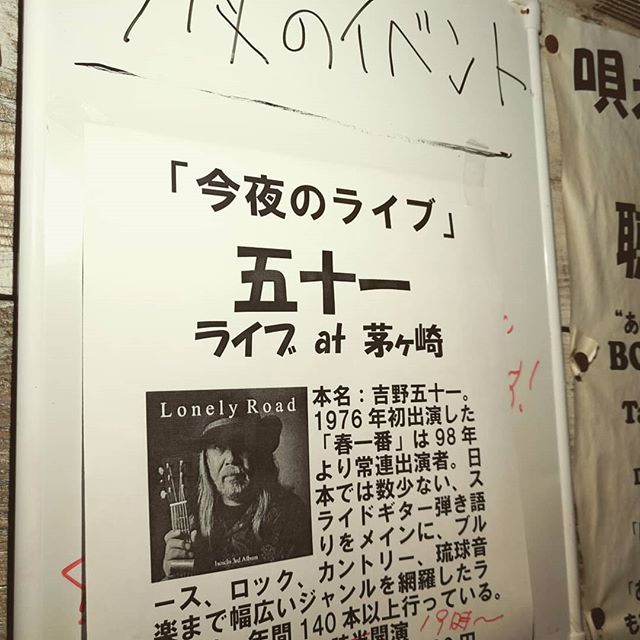 夜のイベント
「今夜のライブ」
五十一
ライブ at 茅ヶ崎
Lonely Road
Isoichi 3rd Album
本名：吉野五十一。
1976年初出演した
「春一番」は98年
より常連出演者。日
本では数少ない、ス
ライドギター弾き語
りをメインに、ブル
ース、ロック、カントリー、琉球音
楽まで幅広いジャンルを網羅したラ
年間140本以上行っている。
19時〜
唄
聴
"あ
BO
Ta